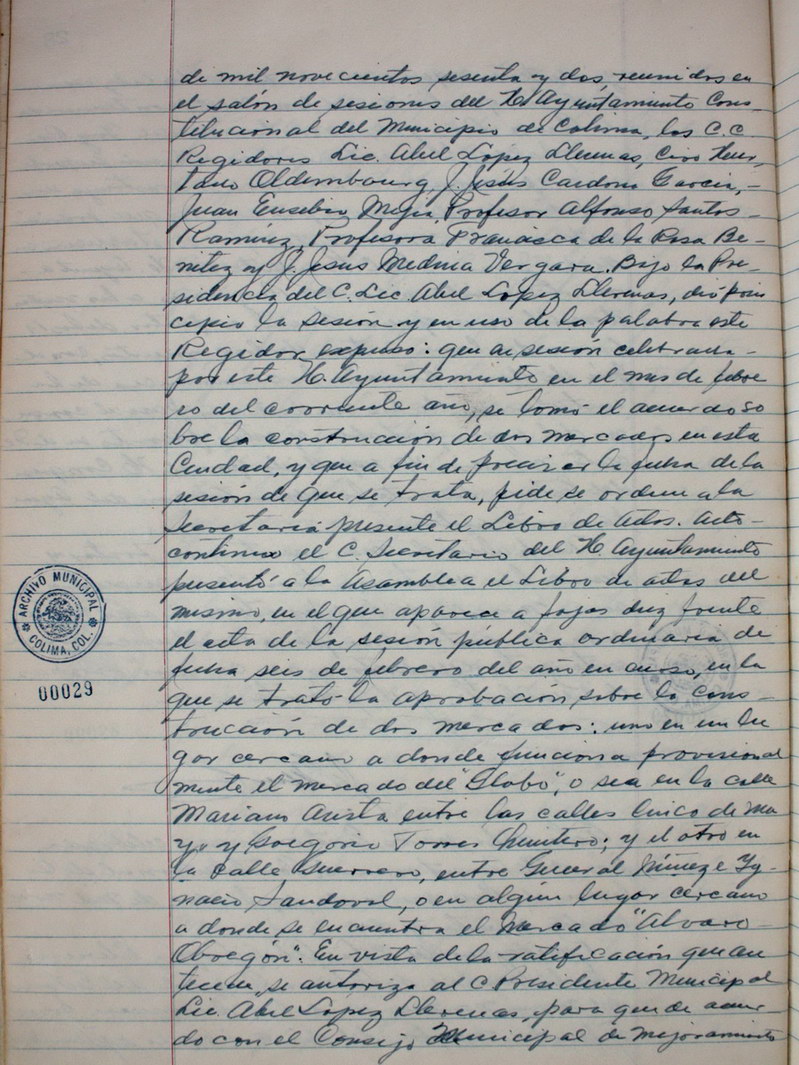 de mil novecientos sesenta y dos reunidos en
el salón de sesiones del H. Ayuntamiento Cons-
titucional del Municipio de Colima, los C.C.
Regidores Lic. Abel Lopez Llerenas, Ciro Hur-
tado Oldembourg, J. Jesús Cardona Garcia,-
Juan Eusebio Mejia, Profesor Alfonso Santos-
Ramírez, Profesora Francisca de la Rosa Be-
nitez y J. Jesus Medina Vergara. Bajo la Pre-
sidencia del C. Lic. Abel Lopez Llerenas, dió prin
cipio la sesión y en uso de la palabra este
Regidor expuso: que en sesión celebrada-
por este H. Ayuntamiento en el mes de febre
ro del corriente año, se tomó el acuerdo so
bre la construcción de dos mercados en esta
Ciudad, y que a fin de precisar la fecha de la
sesión de que se trata, pide se ordene a la
Secretaria presente el Libro de Actas. Acto-
continuo el C. Secretario del H. Ayuntamiento
presentó a la Asamblea el Libro de actas del
mismo, en el que aparece a fojas diez frente
el acta de la sesión pública ordinaria de
fecha seis de febrero del año en curso, en la
que se trató la aprobación sobre la cons-
trucción de dos mercados: uno en un lu
gar cercano a donde funciona provisional
mente el mercado del "Globo", o sea en la calle
Mariano Arista entre las calles Cinco de Ma
yo y Gregorio Torres Quintero; y el otro en
la calle Guerrero, entre General Núñez e Ig-
nacio Sandoval, o en algún lugar cercano
a donde se encuentra el Mercado "Alvaro-
Obregón". En vista de la ratificación que an
tecede, se autoriza al C. Presidente Municipal
Lic. Abel López Llerenas, para que de acuer-
do con el Consejo Municipal de Mejoramiento
ARCHIVO MUNICIPAL
COLIMA, COL.
00029